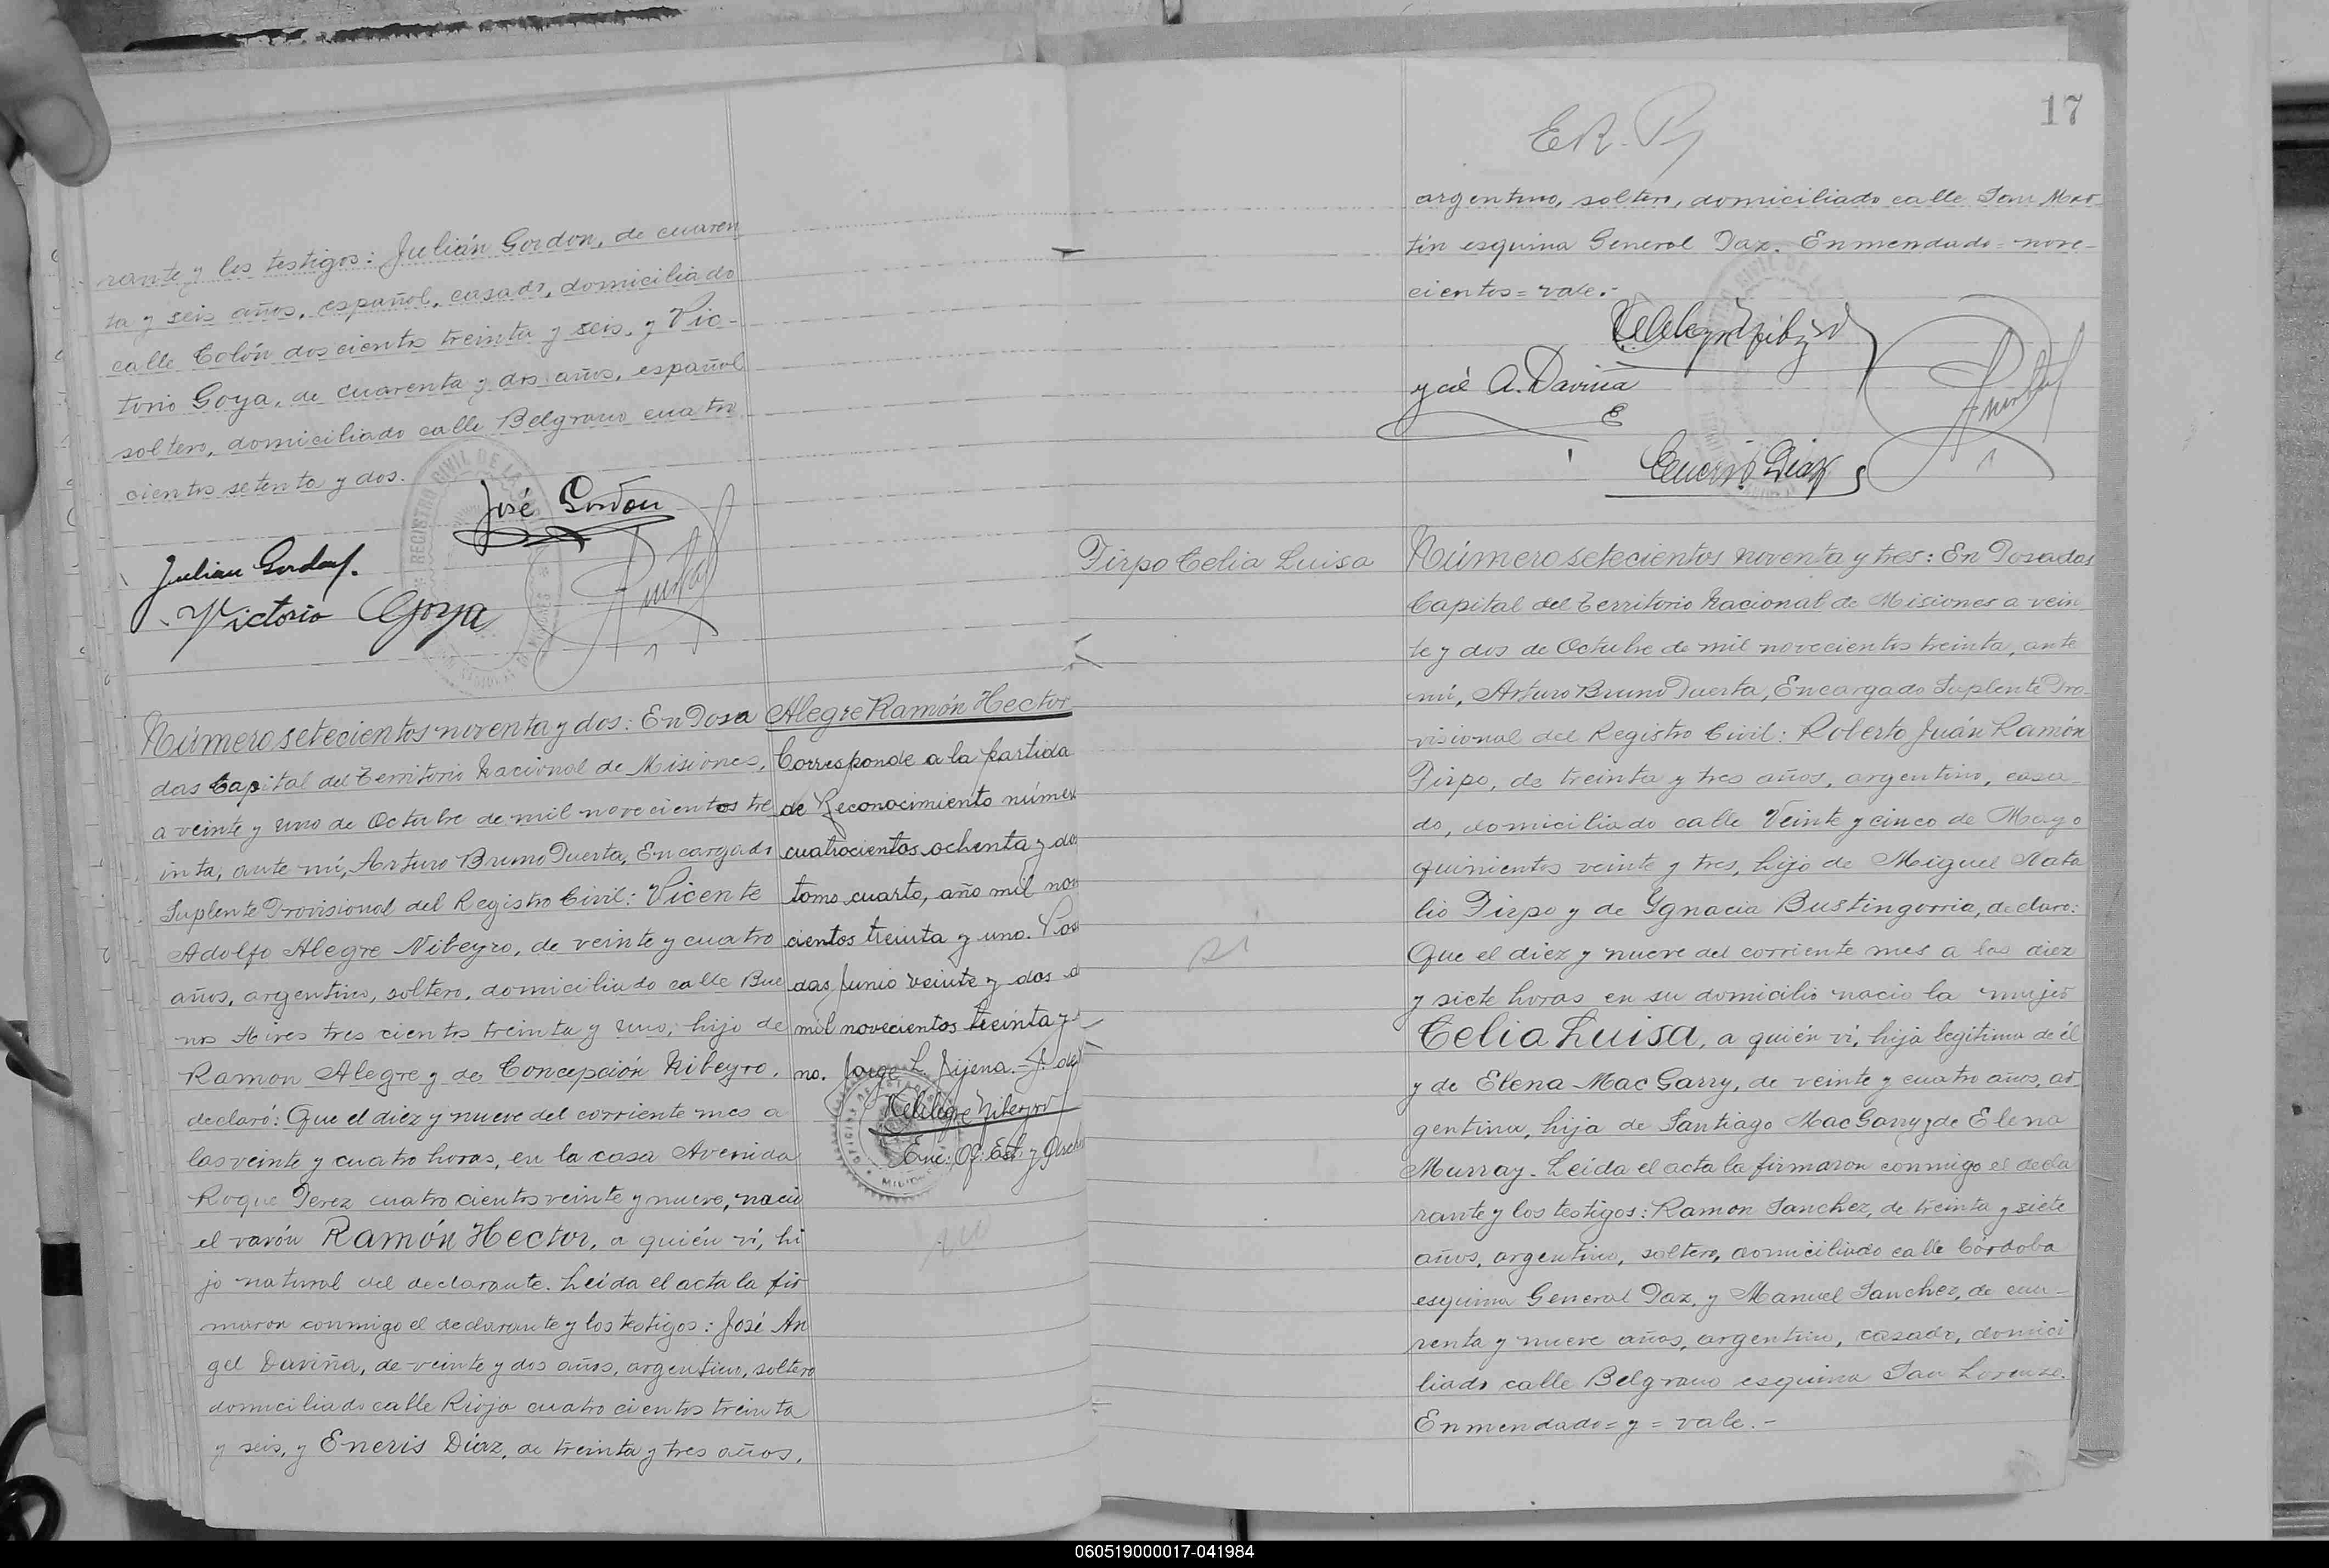 rante y los testigos: Julián Gordon, de cuaren
ta y seis años, español, casado, domiciliado
calle Colón doscientos treinta y seis, y Vic-
torio Goya, de cuarenta y dos años, español
soltero, domiciliado calle Belgrano cuatro
cientos setenta y dos.
José Gordon
Julian Gordon.
Victorio Goya
Número setecientos noventa y dos: En Posa
das Capital del Territorio Nacional de Misiones,
a veinte y uno de Octubre de mil novecientos tre
inta, ante mí, Arturo Bruno Puerta, Encargado
Suplente Provisional del Registro Civil: Vicente
Adolfo Alegre Nibeyro, de veinte y cuatro
años, argentino, soltero, domiciliado calle Bue
nos Aires tres cientos treinta y uno, hijo de
Ramon Alegre y de Concepción Nibeyro,
declaró: Que el diez y nueve del corriente mes a
las veinte y cuatro horas, en la casa Avenida
Roque Perez cuatro cientos veinte y nueve, nació
el varón Ramón Hector, a quién ví, hi
jo natural del declarante. Leída el acta la fir
maron conmigo el declarante y los testigos: José An
gel Daviña, de veinte y dos años, argentino, soltero
domiciliado calle Rioja cuatro cientos treinta
y seis, y Eneris Díaz, de treinta y tres años,
Alegre Ramón Hector
Corresponde a la partida
de Reconocimiento númer
cuatrocientos ochenta y do
tomo cuarto, año mil no
cientos treinta y uno. Pos
das, Junio veinte y dos d
mil novecientos treinta y
no. Jorge L. Jijena.-J. del
VAAlegre Nibeyro
Enc: Of: Est: y Arch
17
E R. P
argentino, soltero, domiciliado calle San Mar
tín esquina General Paz. Enmendado= nove-
cientos= vale.-
VAAlegre Nibeyro
José A. Daviña
Eneris Diaz
Firpo Celia Luisa
Número setecientos noventa y tres: En Posadas
Capital del Territorio Nacional de Misiones a vein
te y dos de Octubre de mil novecientos treinta, ante
mí, Arturo Bruno Puerta, Encargado Suplente Pro-
visional del Registro Civil: Roberto Juán Ramón
Firpo, de treinta y tres años, argentino, casa-
do, domiciliado calle Veinte y cinco de Mayo
quinientos veinte y tres, hijo de Miguel Nata
lio Firpo y de Ygnacia Bustingorria, declaro:
Que el diez y nueve del corriente mes a las diez
y siete horas en su domicilio nacio la mujer
Celia Luisa, a quién ví, hija legitima de él
y de Elena Mac Garry, de veinte y cuatro años, ar
gentina, hija de Santiago Mac Garry y de Elena
Murray. Leida el acta la firmaron conmigo el decla
rante y los testigos: Ramon Sanchez, de treinta y siete
años, argentino, soltero, domiciliado calle Córdoba
esquina General Paz, y Manuel Sanchez, de cua-
renta y nueve años, argentino, casado, domici
liado calle Belgrano esquina San Lorenzo.
Enmendado= y = vale.-
060519000017-041984